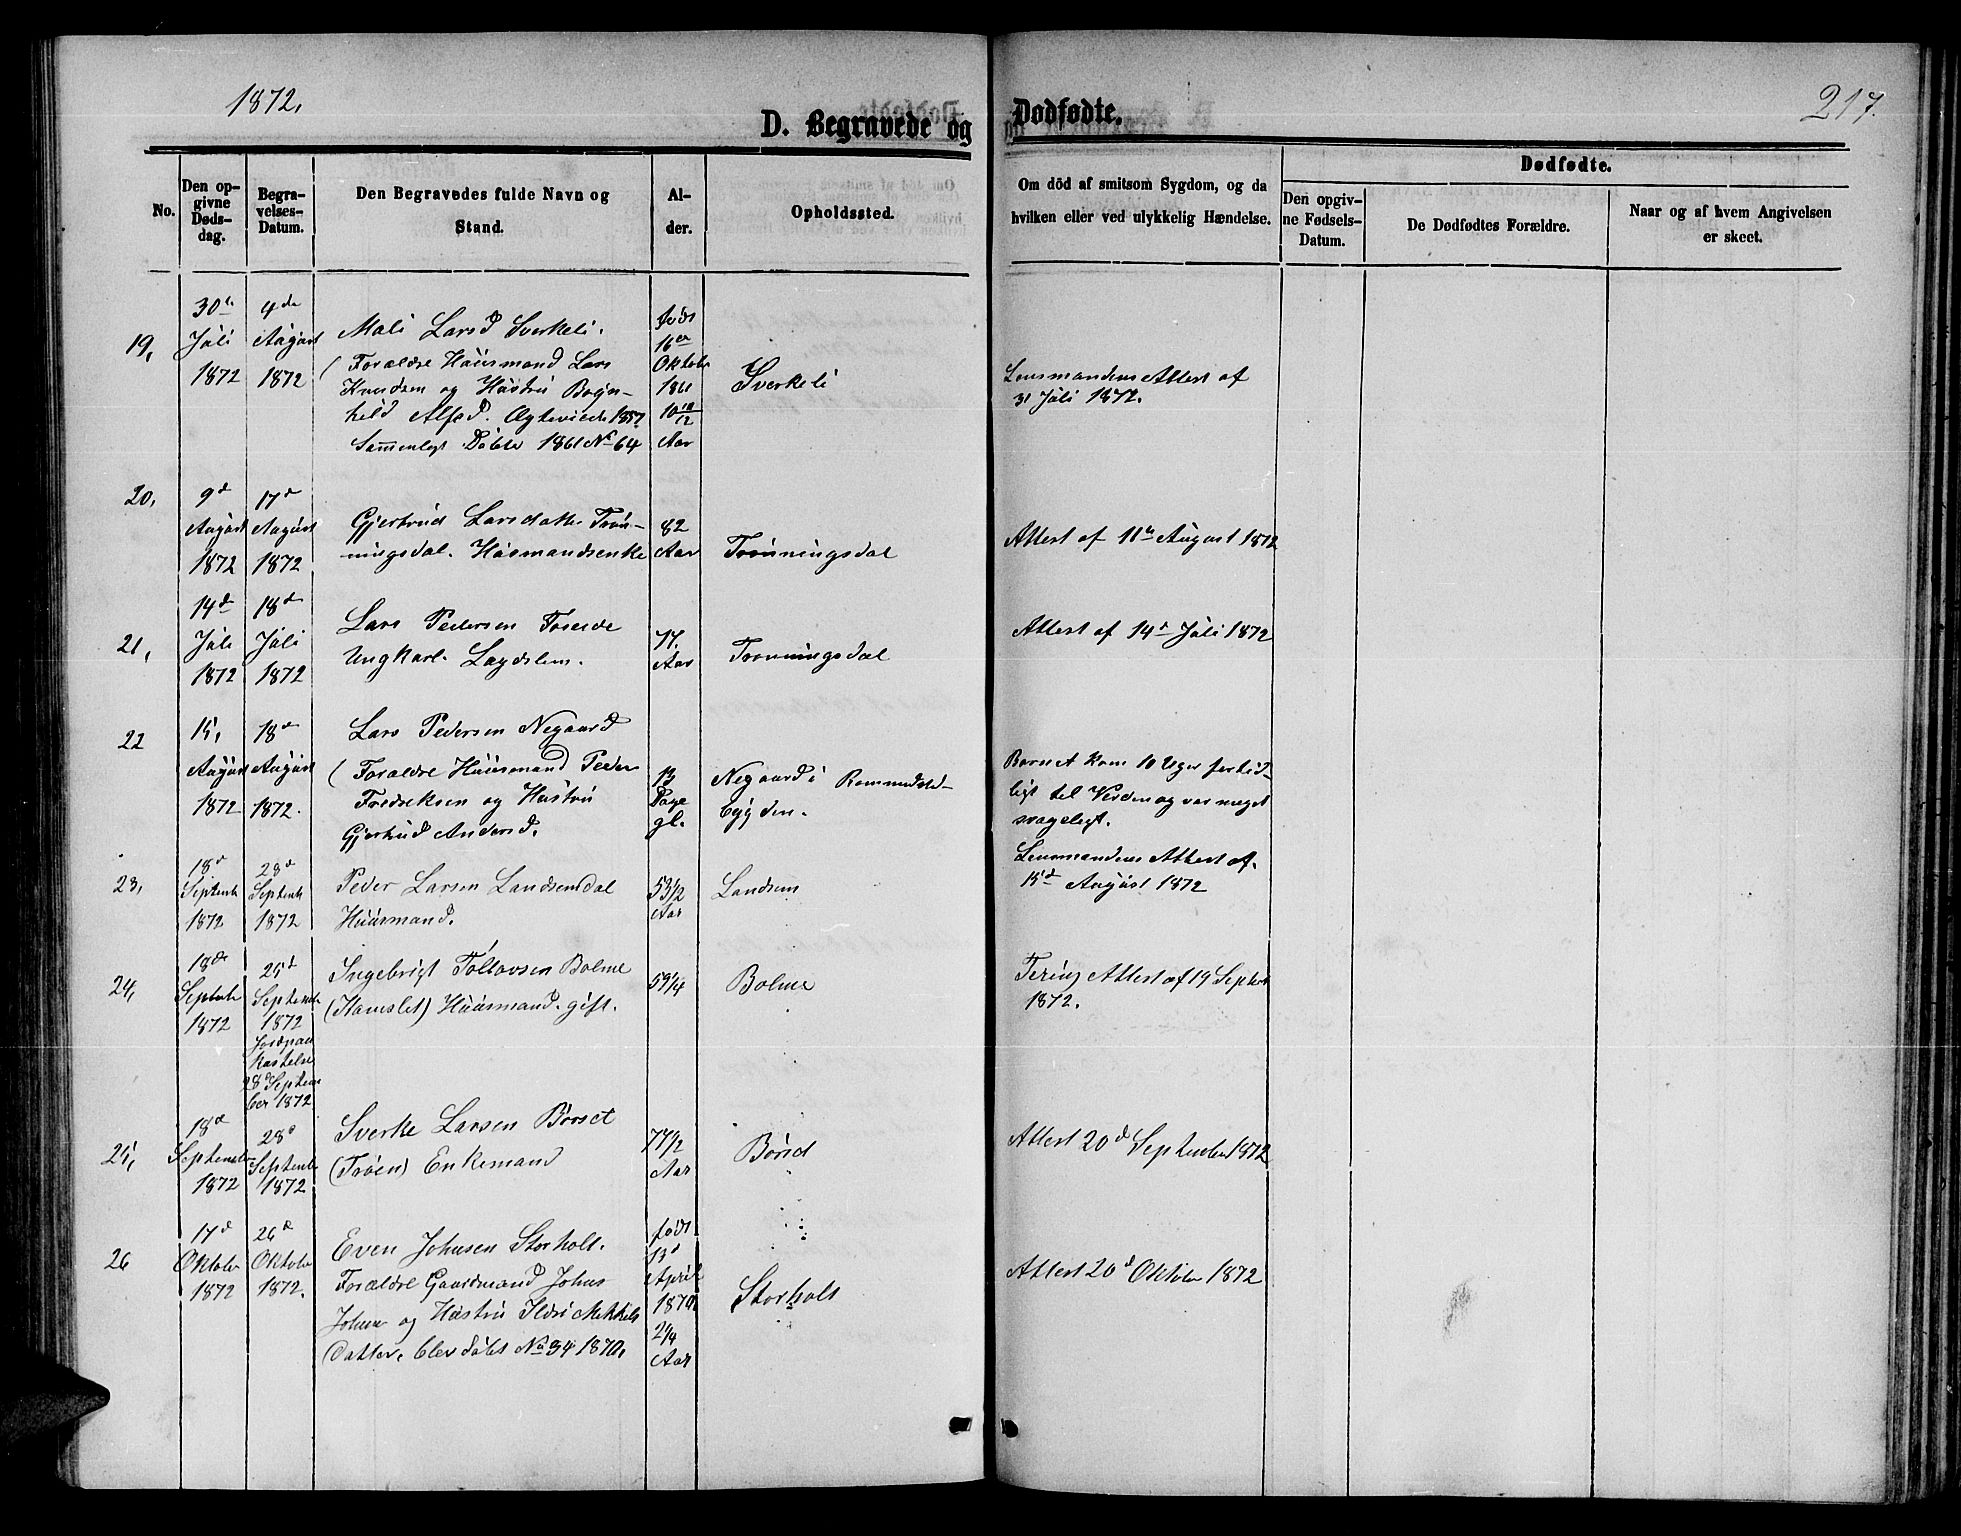 1872,
217.
D. Begravede og Dødfødte.
No.
Den opgivne Døds-dag.
Begravelses-Datum.
Den Begravedes fulde Navn og Stand.
Alder.
Opholdssted.
Om död af smitsom Sygdom, og da hvilken eller ved ulykkelig Hændelse.
Dødfødte.
Den opgivne Fødsels-Datum.
De Dødfødtes Forældre.
Naar og af hvem Angivelsen er skeet.
19,
30te Juli 1872
4de August 1872
Mali Larsd Sverkeli.
(Forældre Huusmand Lars
Knudsen og Hustru Bogn-
hild Alfsd. Ægteviede 1857
Sammenlagt Døbte 1861 No 64
født 16de Oktober 1861 10 10/12 Aar
Sverkeli
Lensmandens Attest af
31 Juli 1872.
20,
9d August 1872
17d August 1872
Gjertrud Larsdatter Trøn-
ningsdal. Husmandsenke
82 Aar
Trønningsdal
Attest af 11te August 1872
21,
14d Juli 1872
18d Juli 1872
Lars Pedersen Foseide
Ungkarl. Lægdslem.
77. Aar
Trønningsdal
Attest af 14d Juli 1872
22
15, August 1872
18d August 1872.
Lars Pedersen Negaard
(Forældre Huusmand Peder
Fredriksen og Hustru
Gjertrud Andersd.
13 Dage gl.
Negaard i Romundstad-
bygden.
Barnet kom 10 Uger fortid-
ligt til Verden og var meget
svageligt.
Lensmandens Attest af
15d August 1872
23,
18d Septembr 1872
28d Septembr 1872
Peder Larsen Landsemdal
Huusmand.
53 1/2 Aar
Landsem
24,
18de Septembr 1872
25d September 1872
Jordpaakastelse
28d Septem-
ber 1872
Ingebrigt Tollovsen Bolme
(Hamslet) Huusmand. gift.
59 1/4
Bolme
Attest af 19 Septbr
1872.
25,
18d September 1872
28d Septembr 1872
Sverke Larsen Børset
(Trøen) Enkemand
77 1/2 Aar
Børsd
Attest 20d September 1872
26
17d Oktober 1872
26d Oktober 1872.
Even Johnsen Storholt.
Forældre Gaardmand John
Johnsen og Hustru Ildri Mikkels
Datter, blev døbt No 34 1870,
født 13d April 1870 2 1/4 Aar
Storholt
Attest 20d Oktober 1872